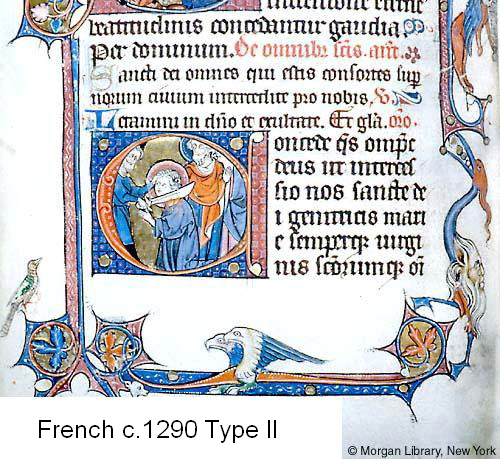 beatitudinis concedantur gaudia.
Per dominum. De omnibz scis. ant.
Sancti dei omnes qui estis consortes sup
norum ciuium intercedite pro nobis. V
Letamini in dno et exultate. Et gla. oro.
Concede qs ompc
deus ut interces
sio nos sancte de
i genitricis mari
e semperqz uirgi
nis scorumqz oi
French c.1290 Type II
© Morgan Library, New York